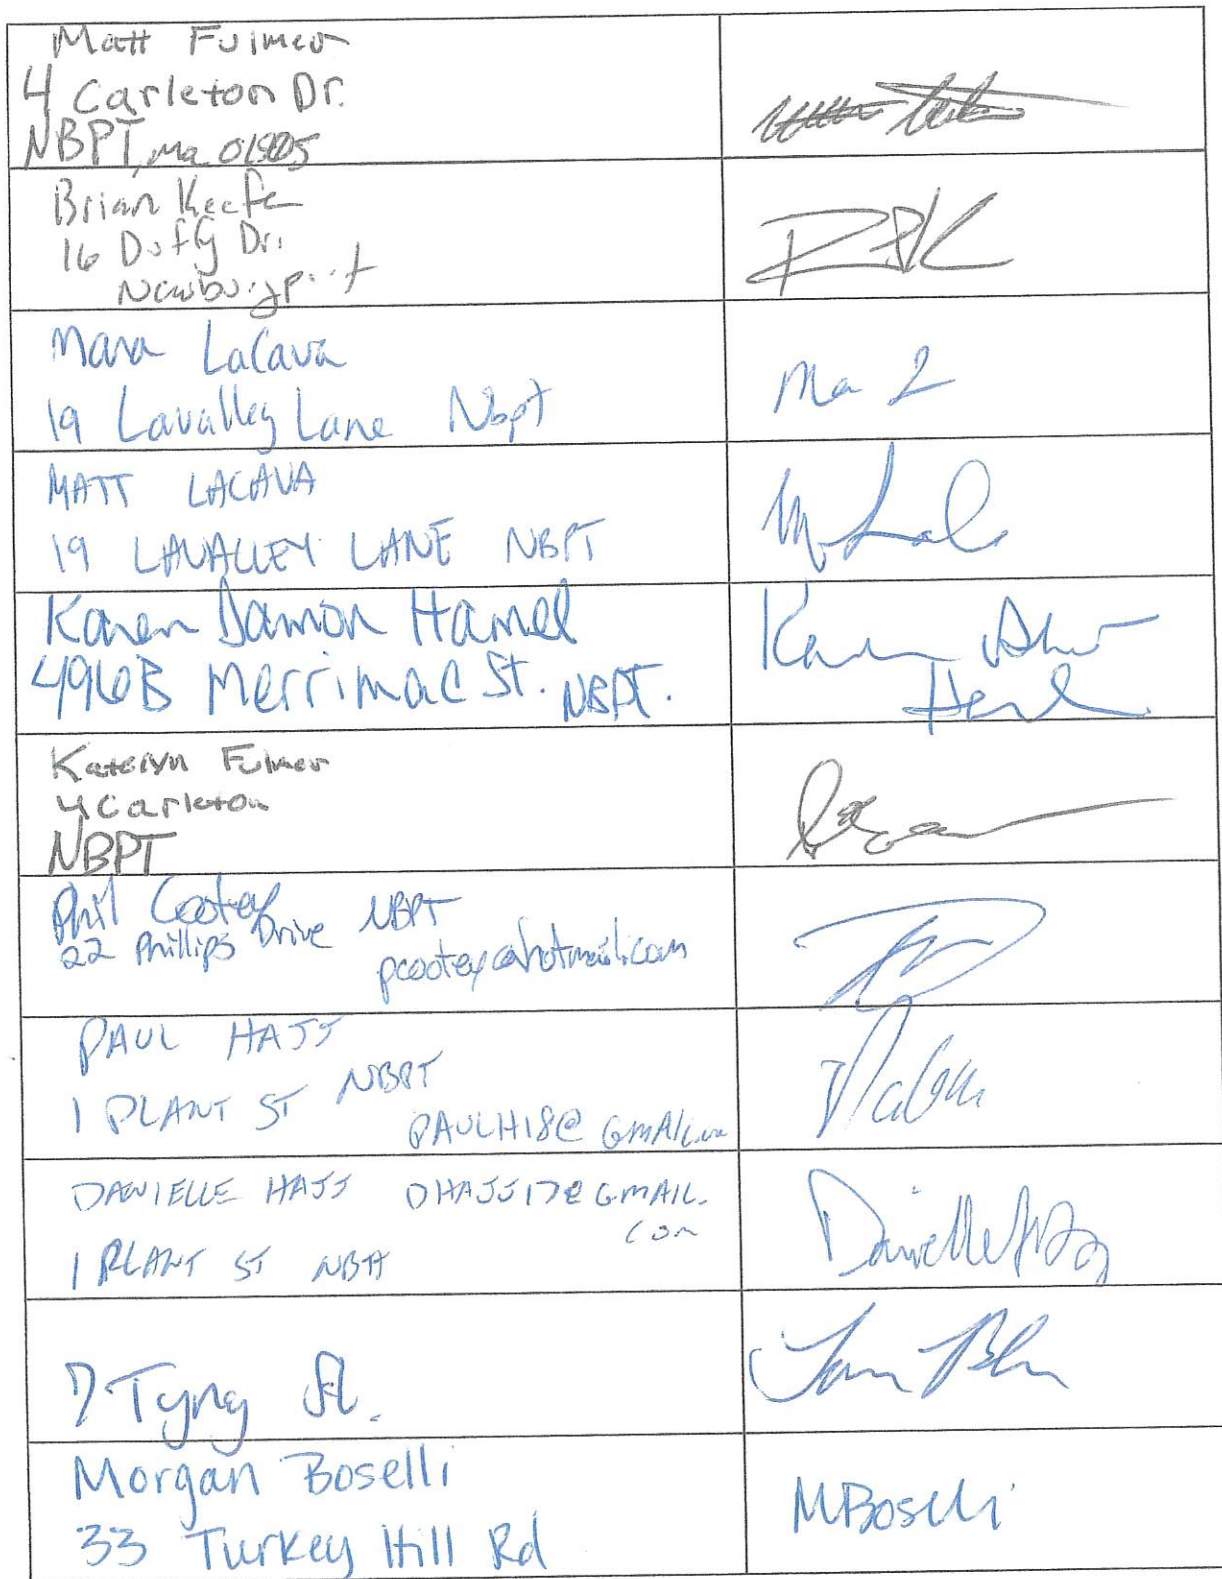 Matt Fulmer
4 Carleton Dr.
NBPT, Ma 01905
Brian Keefe
16 Duffy Dr.
Newburyport
Mara LaCava
19 Lavalley Lane Nbpt
Ma L
MATT LACAVA
19 LAVALLEY LANE NBPT
Karen Damon Hamel
496B Merrimac St. NBPT.
Karen
Katelyn Fulmer
4 Carleton
NBPT
Phil Cootey NBPT
22 Phillips Drive
pcootey@hotmail.com
PAUL HAJJ
1 PLANT ST NBPT
PAULH18@GMAIL.com
DANIELLE HAJJ DHAJJ17@GMAIL.
com
1 PLANT ST NBPT
Danielle
7 Tyng St.
Morgan Boselli
33 Turkey Hill Rd
MBoselli